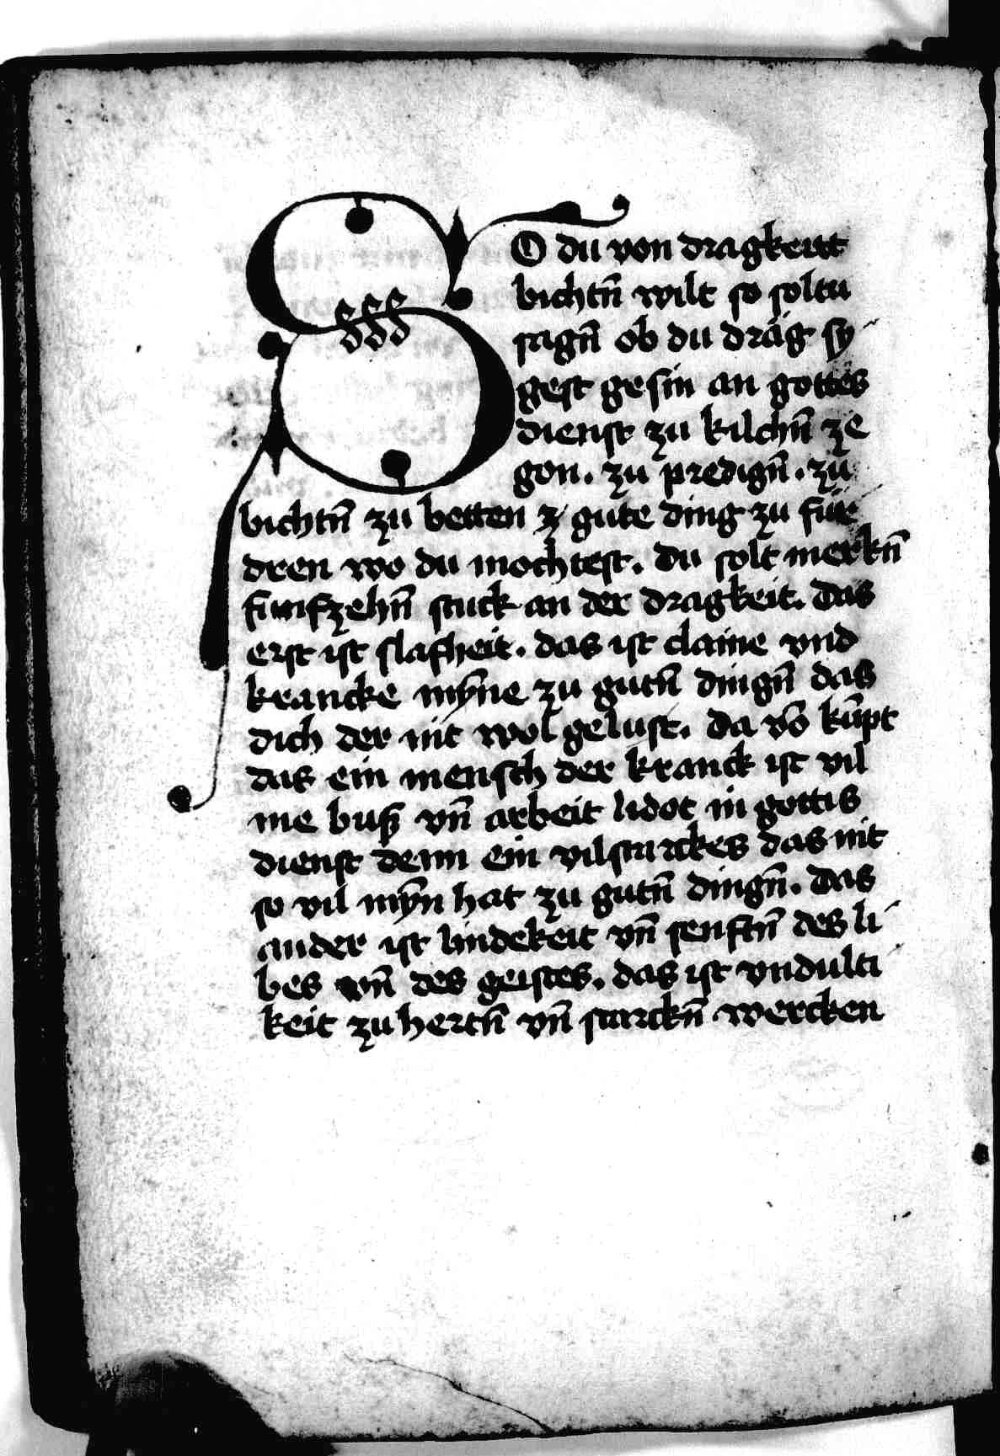 SO du von dragkeitt
bichtn̄ wilt so soltu
sagn̄ ob du dräg sy
gest gesin an gottes
dienst zu kilchn̄ ze
gon. zu predign̄. zu
bichtn̄ zu betten ꝫ gute ding zu für
dren wo du mochtest. du solt merkn̄
funfzehn̄ stuck an der dragkeit. das
erst ist slafheit. das ist claine vnd
krancke mȳne zu gutn̄ dingn̄ das
dich der nit wol gelust. da vō kūpt
das ein mensch der kranck ist vil
me buß vn̄ arbeit lidot in gottis
dienst denn ein vilstarckes das nit
so vil mȳn hat zu gutn̄ dingn̄. das
ander ist lindekeit vn̄ senftn̄ des li
bes vn̄ des geistes. das ist vndulti
keit zu hertn̄ vn̄ starckn̄ wercken